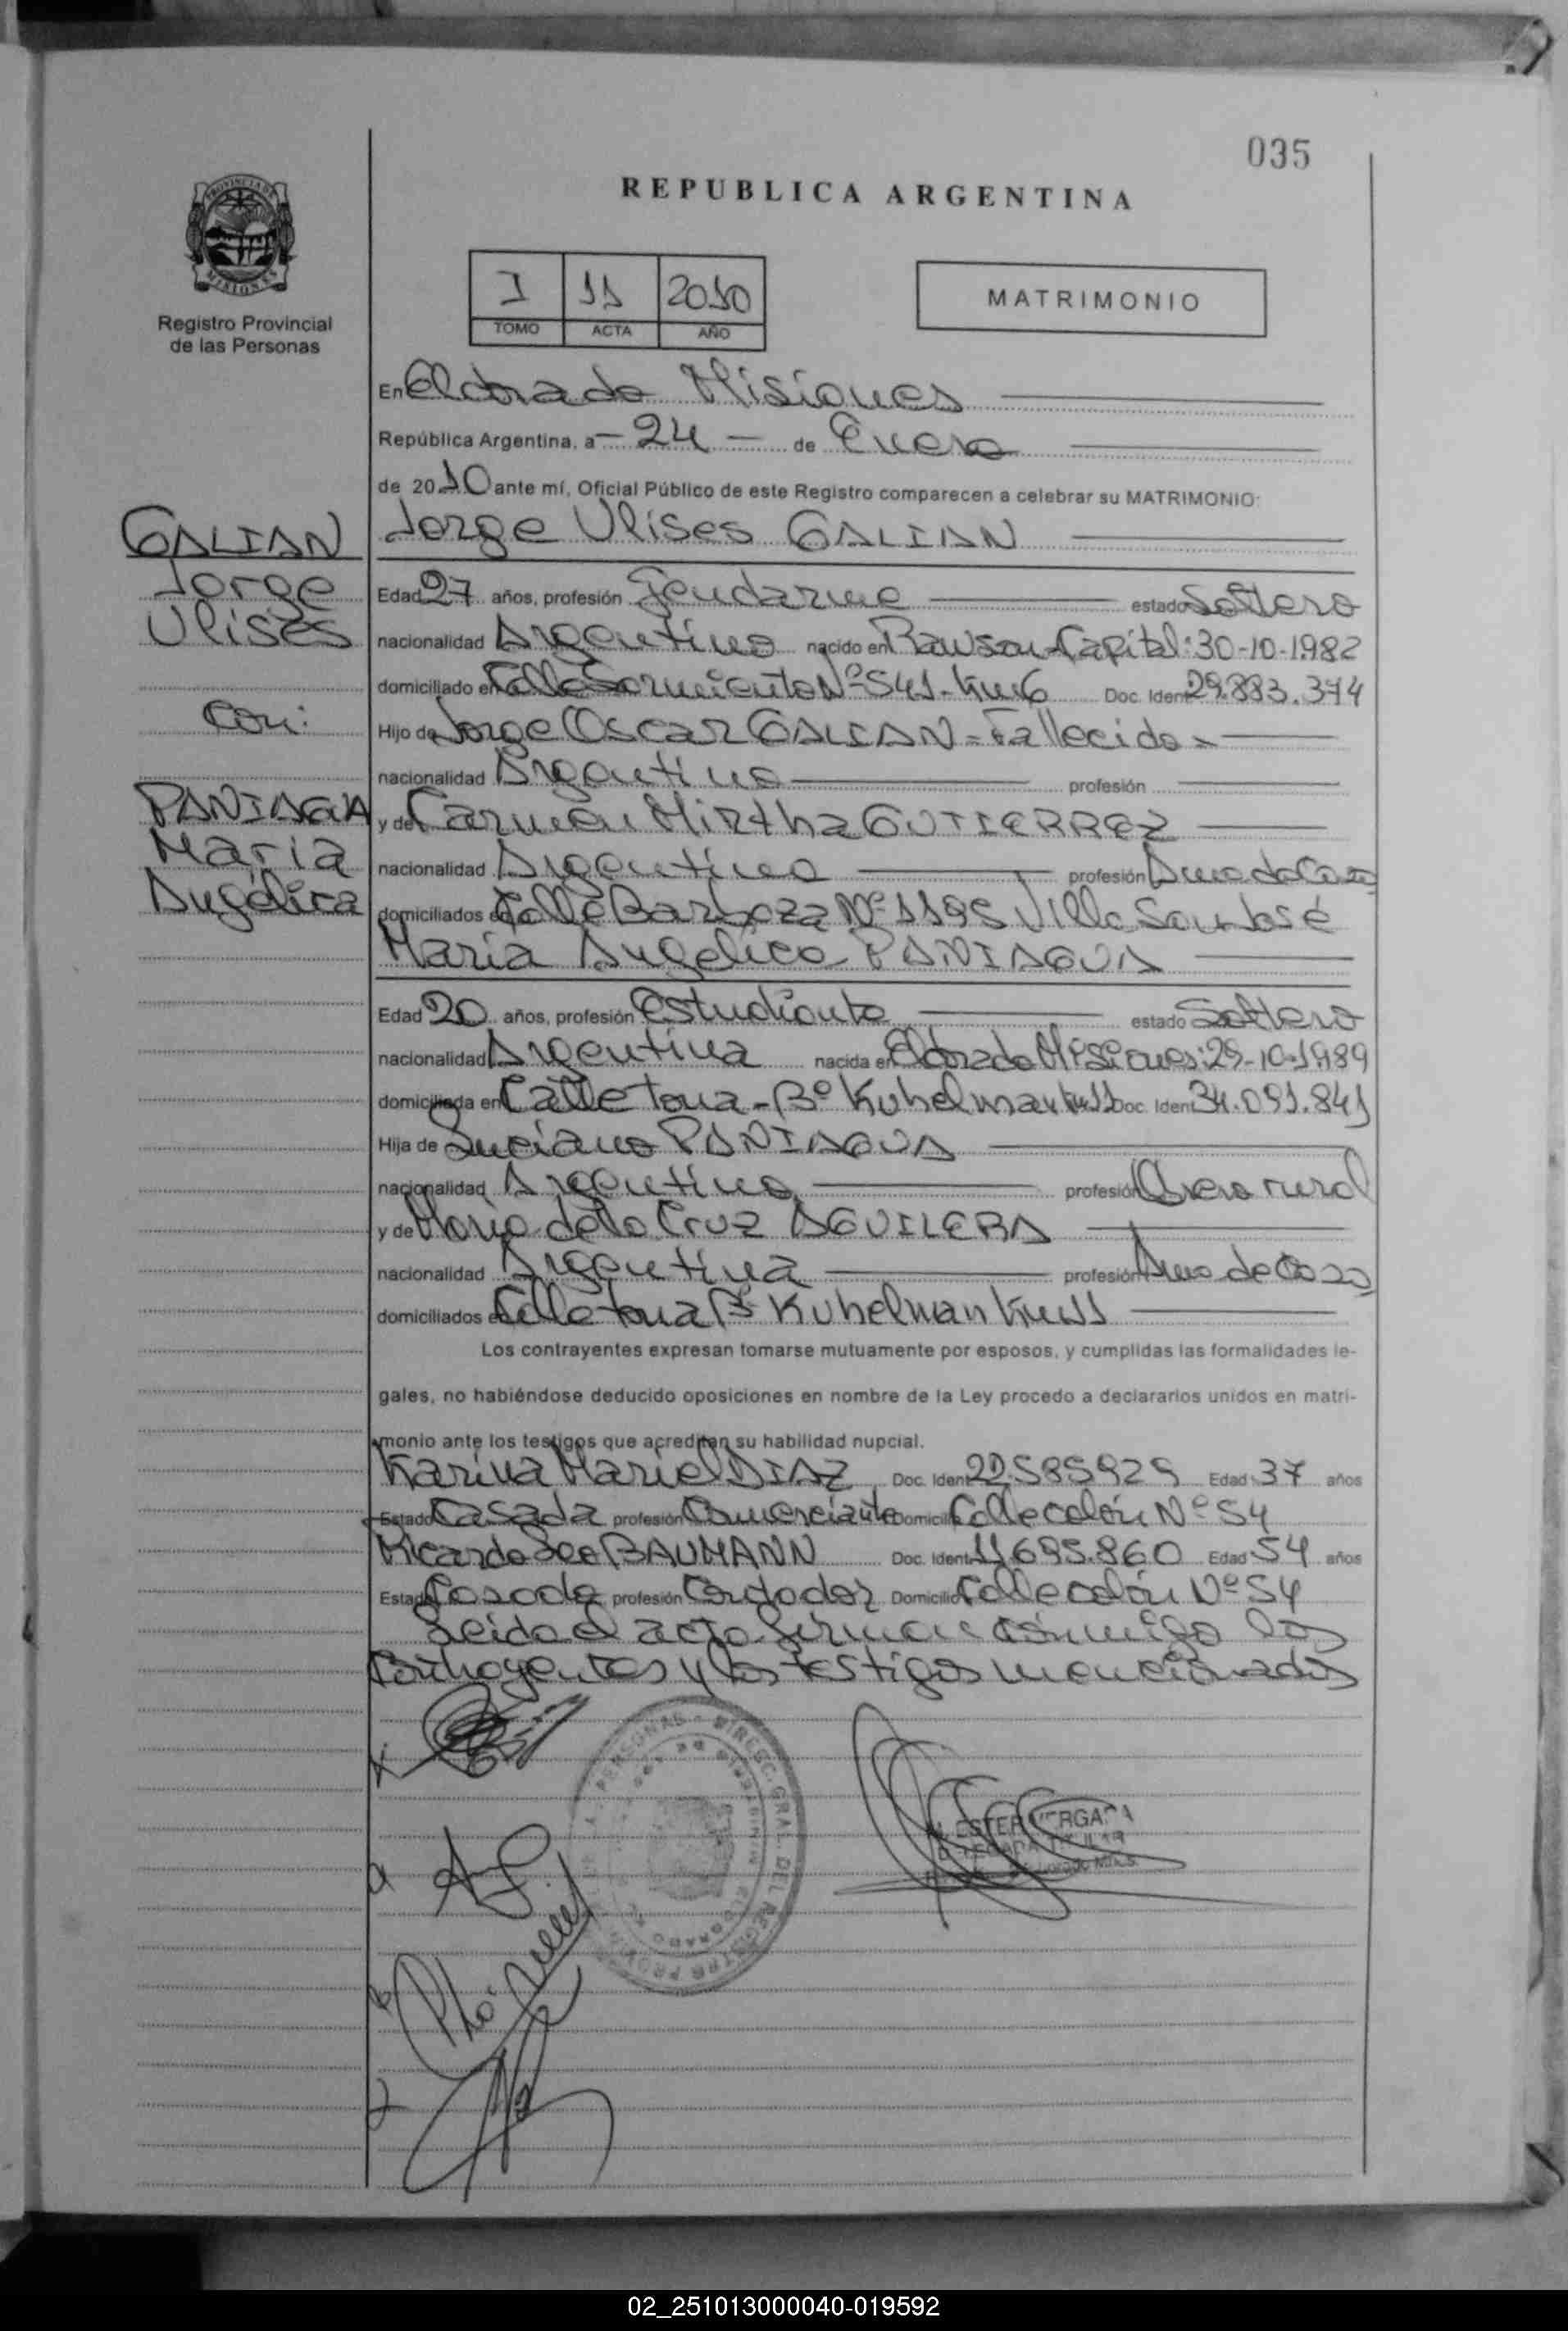 035
REPUBLICA ARGENTINA
PROVINCIA DE MISIONES
Registro Provincial
de las Personas
I 11 2010
TOMO ACTA AÑO
MATRIMONIO
En Eldorado Misiones
República Argentina, a - 24 - de Enero
de 2010 ante mí, Oficial Público de este Registro comparecen a celebrar su MATRIMONIO:
GALIAN
Jorge
Ulises
con:
PANIAGUA
María
Angélica
Jorge Ulises GALIAN
Edad 27 años, profesión Gendarme estado Soltero
nacionalidad Argentino nacido en Rawson-Capital: 30-10-1982
domiciliado en Calle Sarmiento Nº 541- Km 6 Doc. Ident 29.883.374
Hijo de Jorge Oscar GALIAN - Fallecido -
nacionalidad Argentino profesión
y de Carmen Mirtha GUTIERREZ
nacionalidad Argentina profesión Ama de Casa
domiciliados en Calle Barboza Nº 1195 Villa San José
María Angélica PANIAGUA
Edad 20 años, profesión Estudiante estado Soltera
nacionalidad Argentina nacida en Eldorado Misiones: 29-10-1989
domiciliada en Calle Tona - Bº Kuhelman Km 11 Doc. Ident 34.091.841
Hija de Luciano PANIAGUA
nacionalidad Argentino profesión Obrero rural
y de María de la Cruz AGUILERA
nacionalidad Argentina profesión Ama de Casa
domiciliados en Calle Tona Bº Kuhelman Km 11
Los contrayentes expresan tomarse mutuamente por esposos, y cumplidas las formalidades le-
gales, no habiéndose deducido oposiciones en nombre de la Ley procedo a declararlos unidos en matri-
monio ante los testigos que acreditan su habilidad nupcial.
Karina Mariel DIAZ Doc. Ident 22.585929 Edad 37 años
Estado Casada profesión Comerciante Domicilio Calle Colón Nº 54
Ricardo Leo BAUMANN Doc. Ident 11.695.860 Edad 54 años
Estado Casado profesión Contador Domicilio Calle Colón Nº 54
Leida el acta firman conmigo los
Contrayentes y los testigos mencionados
DIRECC. GRAL. DEL REGISTRO PROV. DE LAS PERSONAS
ELDORADO
ESTER VERGARA
DELEGADA TITULAR
02_251013000040-019592